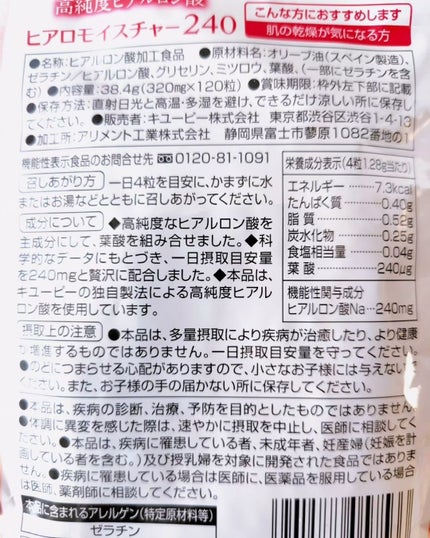 高純度ヒアルロン酸
ヒアロモイスチャー240
こんな方におすすめします
肌の乾燥が気になる方
●名称:ヒアルロン酸加工食品 ●原材料名:オリーブ油(スペイン製造)、
ゼラチン/ヒアルロン酸、グリセリン、ミツロウ、葉酸、(一部にゼラチンを含
む) ●内容量:38.4g(320mg×120粒) ●賞味期限:枠外左下部に記載
●保存方法:直射日光と高温・多湿を避け、できるだけ涼しい所に保存し
てください。 ●販売者:キユーピー株式会社 東京都渋谷区渋谷1-4-13
●加工所:アリメント工業株式会社 静岡県富士市蓼原1082番地の1
機能性表示食品のお問合せ先 0120-81-1091
召しあがり方 一日4粒を目安に、かまずに水
またはお湯などとともに召しあがってください。
成分について ◆高純度なヒアルロン酸を
主成分にして、葉酸を組み合せました。◆科
学的なデータにもとづき、一日摂取目安量
を240mgと贅沢に配合しました。◆本品は、
キユーピーの独自製法による高純度ヒアル
ロン酸を使用しています。
栄養成分表示(4粒1.28g当たり)
エネルギー 7.3kcal
たんぱく質 0.40g
脂質 0.52g
炭水化物 0.25g
食塩相当量 0.04g
葉酸 240μg
機能性関与成分
ヒアルロン酸Na…240mg
摂取上の注意 ●本品は、多量摂取により疾病が治癒したり、より健康
が増進するものではありません。一日摂取目安量を守ってください。
●のどにつまらせる心配がありますので、小さなお子様には与えない
ください。また、お子様の手の届かない所に保存してください。
●本品は、疾病の診断、治療、予防を目的としたものではありません
●体調に異変を感じた際は、速やかに摂取を中止し、医師に相談して
ください。●本品は、疾病に罹患している者、未成年者、妊産婦(妊娠を計
画している者を含む。)及び授乳婦を対象に開発された食品ではありま
せん。●疾病に罹患している場合は医師に、医薬品を服用している場合
は医師、薬剤師に相談してください。
本品に含まれるアレルゲン(特定原材料等)
ゼラチン